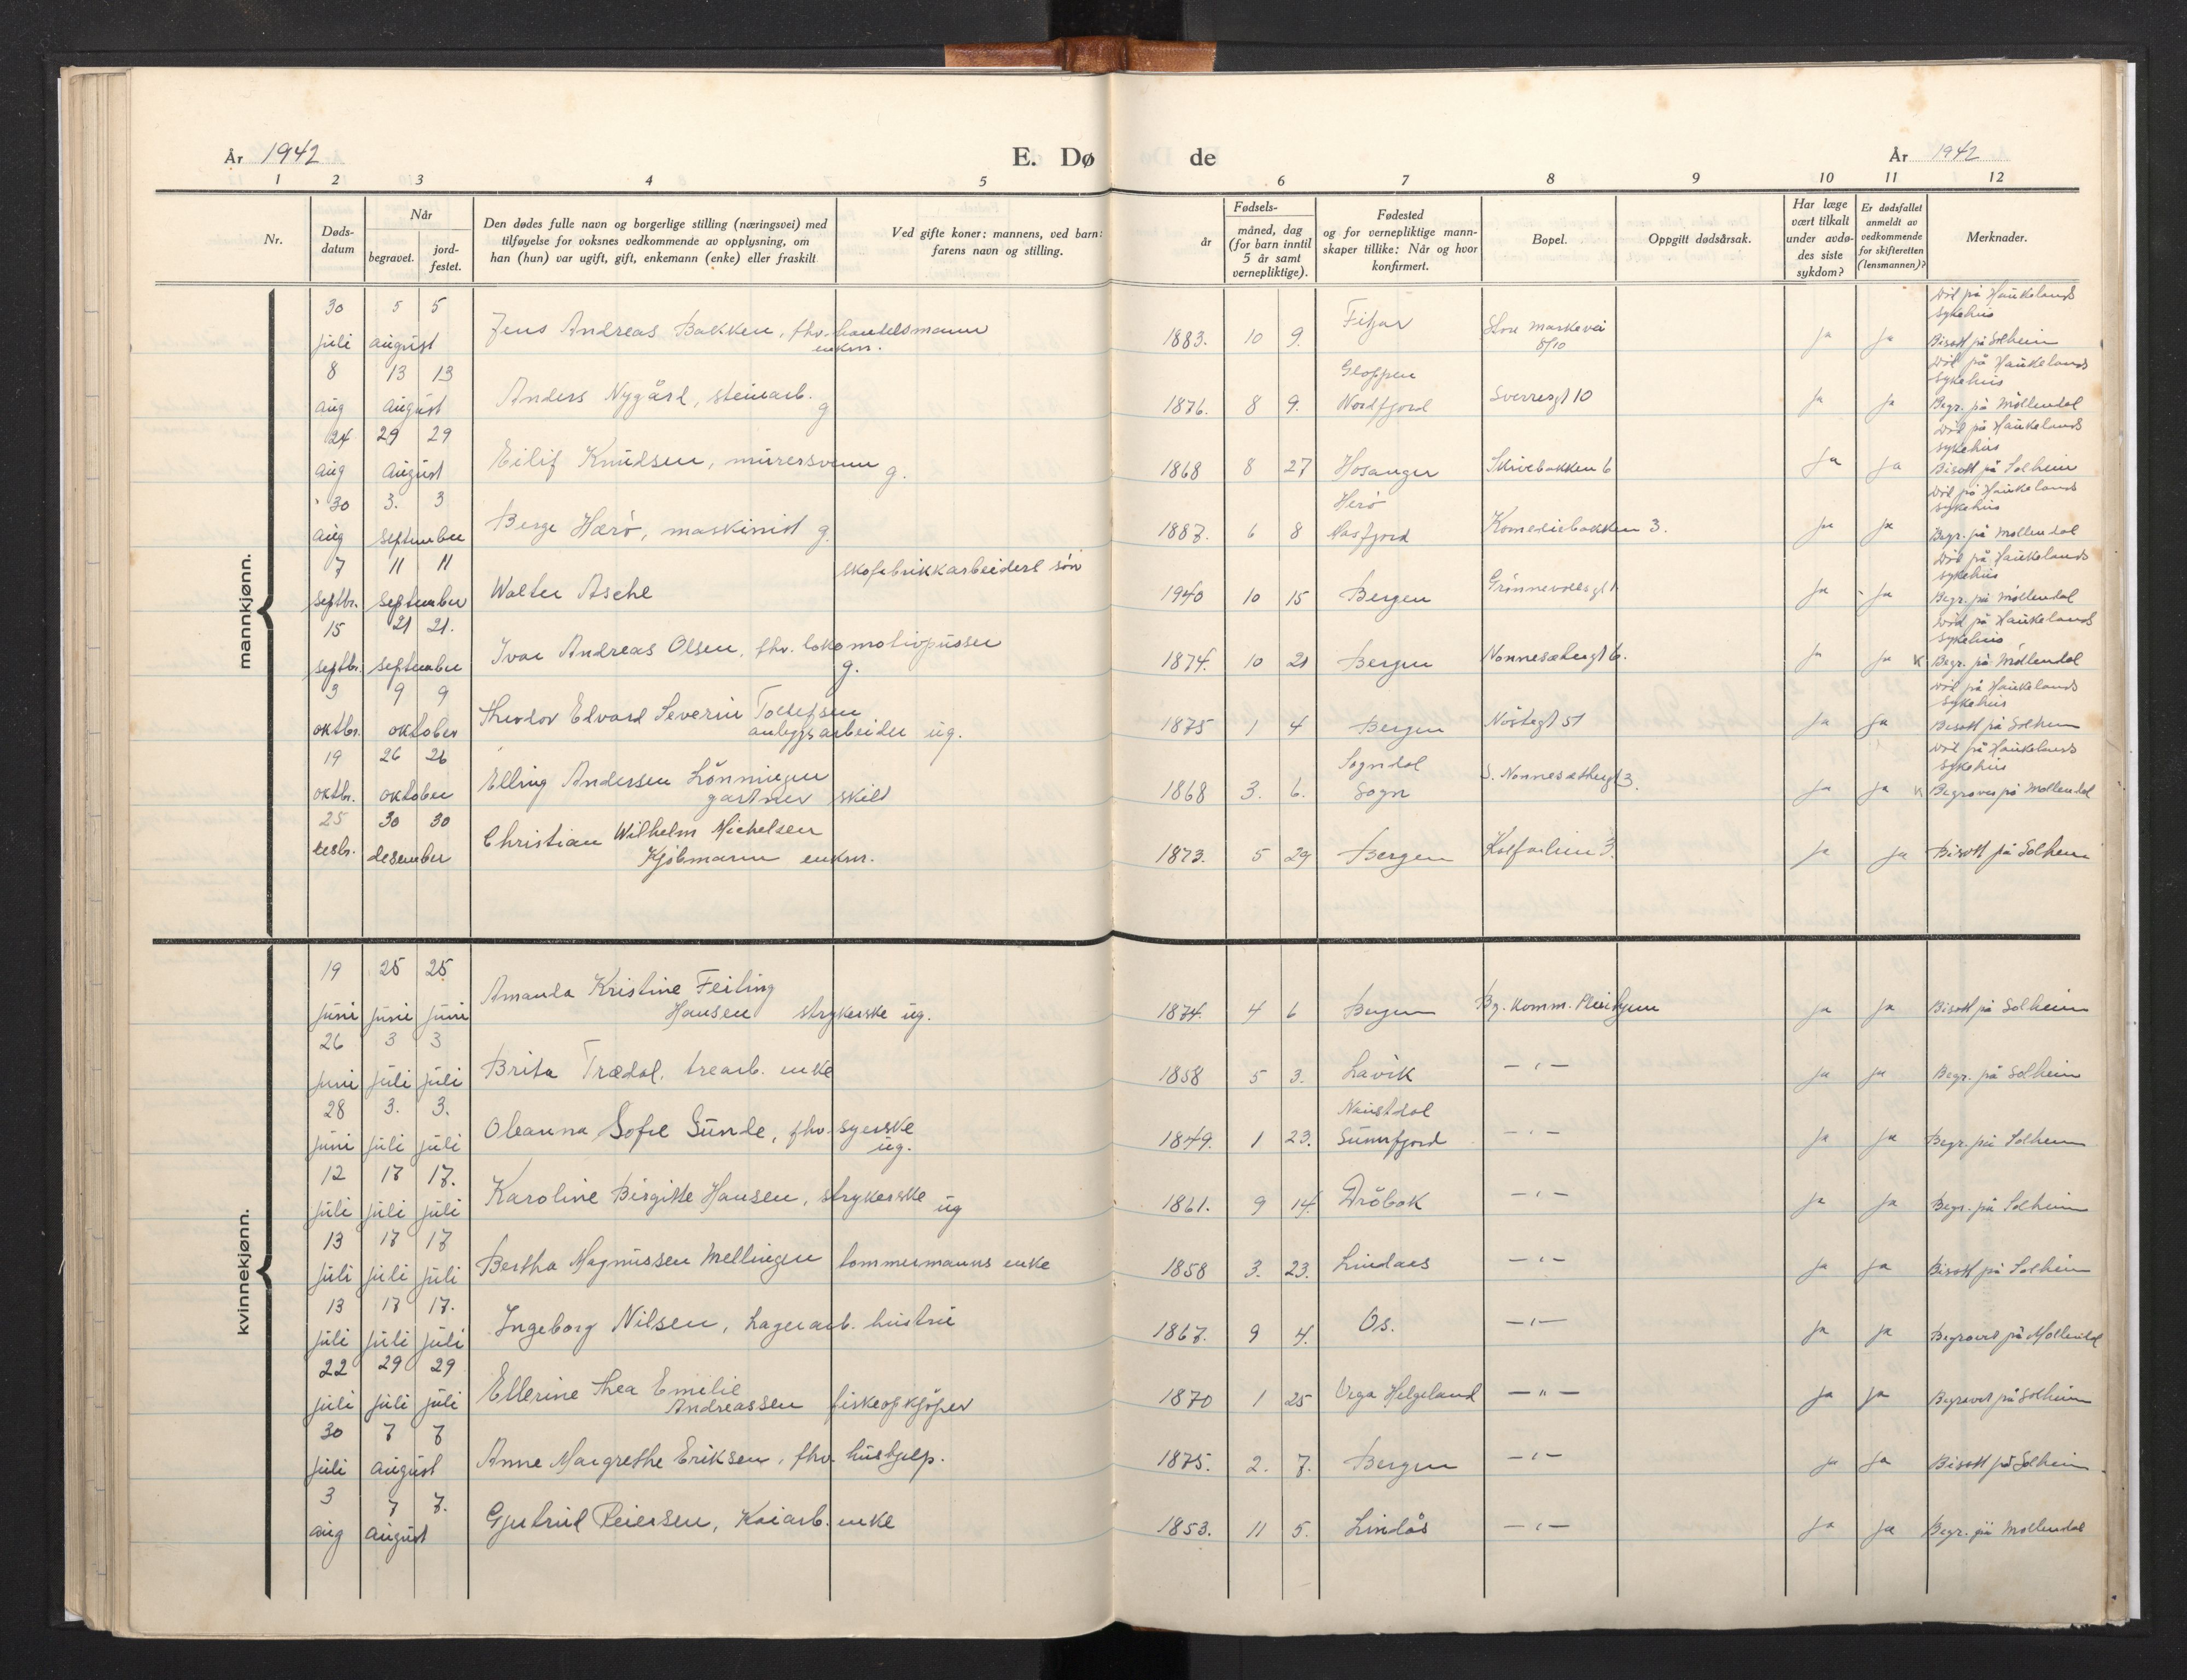 År 1942
E. Dø de
År 1942
1 2 3 4 5 6 7 8 9 10 11 12
Nr.
Døds-
datum
Når
begravet.
jord-
festet.
Den dødes fulle navn og borgerlige stilling (næringsvei) med
tilføyelse for voksnes vedkommende av opplysning, om
han (hun) var ugift, gift, enkemann (enke) eller fraskilt
Ved gifte koner: mannens, ved barn:
farens navn og stilling.
Fødsels-
år
måned, dag
(for barn inntil
5 år samt
vernepliktige).
Fødested
og for vernepliktige mann-
skaper tillike: Når og hvor
konfirmert.
Bopel.
Oppgitt dødsårsak.
Har læge
vært tilkalt
under avdø-
des siste
sykdom?
Er dødsfallet
anmeldt av
vedkommende
for skifteretten
(lensmannen)?
Merknader.
mannkjønn.
30 5 5 Fitjar Död på Haukelands
sykehus
juli august Jens Andreas Bakken, fhv. handelsmann 1883. 10 9. Store Markevei ja ja Bisatt på Solheim
enkm. 8/10
8 13 13 Gloppen Död på Haukelands
sykehus
aug august Anders Nygård, steinarb. g 1876. 8 9. Nordfjord Sverresgt 10 ja ja Begr. på Möllendal
24 29 29 Död på Haukelands
sykehus
aug august Eilif Knudsen, murersvenn g. 1868 8 27 Hosanger Skivebakken 6 ja ja Bisatt på Solheim
30 3. 3 Herö Död på Haukelands
sykehus
aug september Berge Hærö, maskinist g. 1887. 6 8 Masfjord Komediebakken 3. ja ja Begr. på Möllendal
7 11 11 skofabrikkarbeiders sön Död på Haukelands
sykehus
septbr. september Walter Asche 1940 10 15 Bergen Grönnevollsgt 1 ja ja Begr. på Möllendal
15 21 21. Död på Haukelands
sykehus
septbr. september Ivar Andreas Olsen, fhv. lokomotivpusser g. 1874. 10 21 Bergen Nonnesætergt 6. ja ja Begr. på Möllendal
3 9 9 Död på Haukelands
sykehus
oktbr. oktober Theodor Edvard Severin Tollefsen 1875 1 4 Bergen Nöstegt 51 ja ja Bisatt på Solheim
anleggsarbeider ug.
19 26 26 Sogndal Död på Haukelands
sykehus
oktbr. oktober Elling Andersen Lönningen 1868 3. 6. Sogn S. Nonnesætergt 3. ja ja Begraves på Möllendal
gartner skilt
25 30 30
desbr. desember Christian Wilhelm Michelsen 1873. 5 29 Bergen Kalfarlien 3. ja ja Bisatt på Solheim
Kjöbmann enkm.
kvinnekjønn.
19 25 25
juni juni juni Amanda Kristine Feiling 1874. 4 6 Bergen Bg. Komm. Pleiehjem ja ja Bisatt på Solheim
Hansen strykerske ug.
26 3 3
juni juli juli Brita Trædal, trearb. enke 1858 5 3. Lavik — " — ja ja Begr. på Solheim
28 3. 3. Naustdal
juni juli juli Oleanna Sofie Sunde, fhv. syerske 1849. 1 23. Sunnfjord — " — ja ja Begr. på Solheim
ug.
12 17 17.
juli juli juli Karoline Birgitte Hansen, strykerske ug 1861. 9 14 Dröbak — " — ja ja Begr. på Solheim
13 17 17
juli juli juli Bertha Magnussen Mellingen tömmermanns enke 1858 3. 23. Lindaas — " — ja ja Bisatt på Solheim
13 17 17.
juli juli juli Ingeborg Nilsen, Lagerarb. hustru 1867. 9 4. Os. — " — ja ja Begravet på Möllendal
22 29 29
juli juli juli Ellerine Thea Emilie 1870 1 25 Vega Helgeland — " — ja ja Begravet på Solheim
Andreassen fiskeopkjöper
30 7 7
juli august Anne Margrethe Eriksen, fhv. hushjelp. 1875. 2. 7. Bergen — " — ja ja Bisatt på Solheim.
3 7 7.
aug august Gjertrud Reiersen, Kaiarb. enke 1853. 11 5. Lindås — " — ja ja Begr. på Möllendal